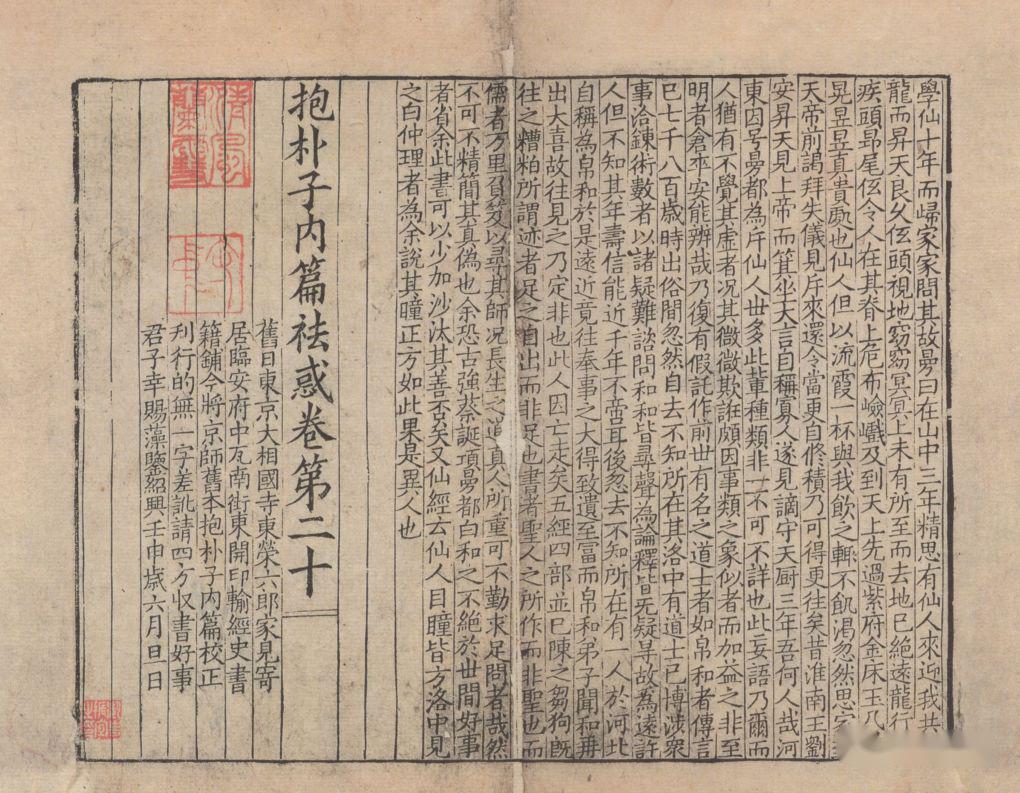 學仙十年而歸家家問其故曼曰在山中三年精思有仙人來迎我共
龍而昇天良久伭頭視地窈窈冥冥上未有所至而去地已絶遠龍行
疾頭昻尾伭令人在其脊上危布嶮巇及到天上先過紫府金床玉
晃晃昱昱真貴處也仙人但以流霞一杯與我飲之輒不飢渴忽然思
天帝前謁拜失儀見斥來還令當更自修積乃可得更往矣昔淮南王劉
安昇天見上帝而箕坐大言自稱寡人遂見謫守天厨三年吾何人哉河
東因号曼都為斥仙人世多此輩種類非一不可不詳也此妄語乃爾而
人猶有不覺其虛者况其微微欺誑頗因事類之象似者而加益之非至
明者倉卒安能辨哉乃復有假託作前世有名之道士者如帛和者傳言
已七千八百歲時出俗間忽然自去不知所在其洛中有道士已博涉衆
事洽鍊術數者以諸疑難諮問和和皆尋聲為論釋皆无疑㝵故為遠許
人但不知其年壽信能近千年不啻耳後忽去不知所在有一人於河北
自稱為帛和於是遠近竟往奉事之大得致遺至富而帛和弟子聞和再
出大喜故往見之乃定非也此人因亡走矣五經四部並已陳之芻狗既
往之糟粕所謂迹者足之自出而非足也書者聖人之所作而非聖也而
儒者万里負笈以尋其師况長生之道真人所重可不勤求足問者哉然
不可不精簡其真偽也余恐古強蔡誕項曼都白和之不絶於世間好事
者省余此書可以少加沙汰其善否矣又仙經云仙人目瞳皆方洛中見
之白仲理者為余說其瞳正方如此果是異人也
抱朴子内篇祛惑卷第二十
舊日東京大相國寺東榮六郎家見寄
居臨安府中瓦南街東開印輸經史書
籍鋪今將京師舊本抱朴子内篇校正
刋行的無一字差訛請四方収書好事
君子幸賜藻鑒紹興壬申歲六月旦日